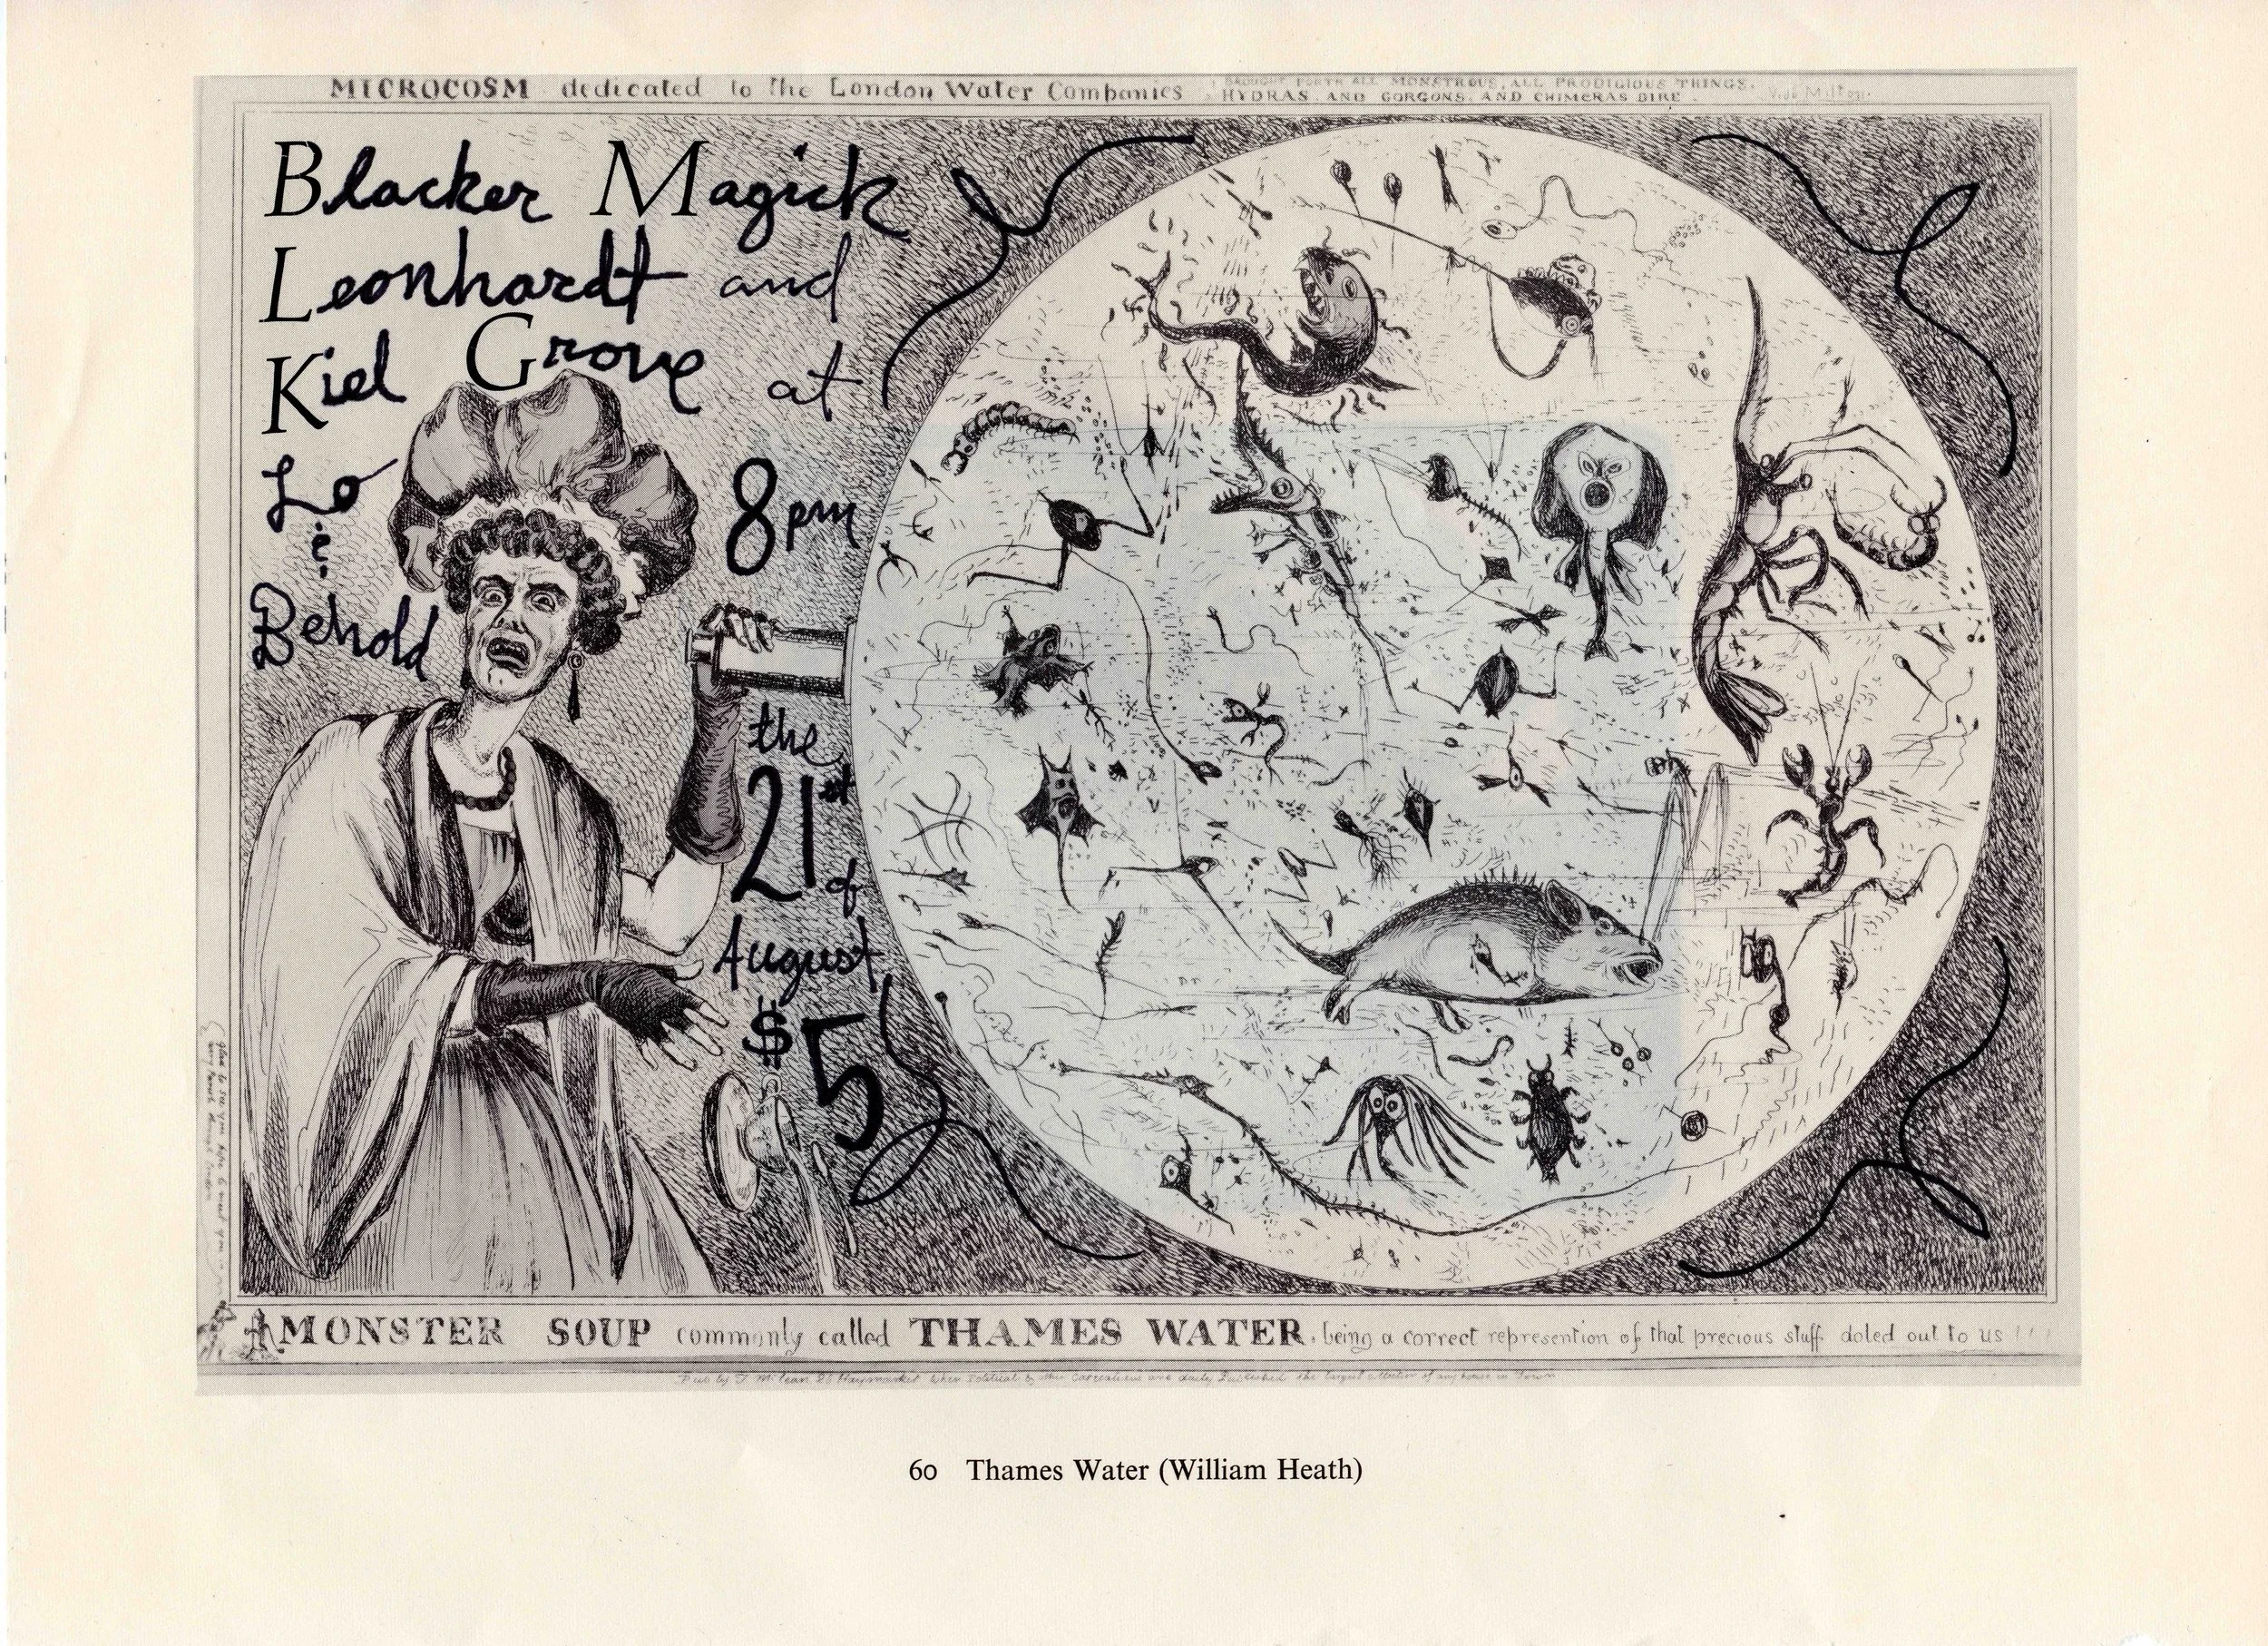 MICROCOSM dedicated to the London Water Companies
BROUGHT FORTH ALL MONSTROUS, ALL PRODIGIOUS THINGS,
HYDRAS AND GORGONS, AND CHIMERAS DIRE.
Vide Milton
Blacker Magick
Leonhardt and
Kiel Grove at
Lo
&
Behold
8pm
the
21st
of
August
$5
MONSTER SOUP commonly called THAMES WATER. being a correct represention of that precious stuff doled out to us !!!
Pub by T. McLean 26 Haymarket
60 Thames Water (William Heath)